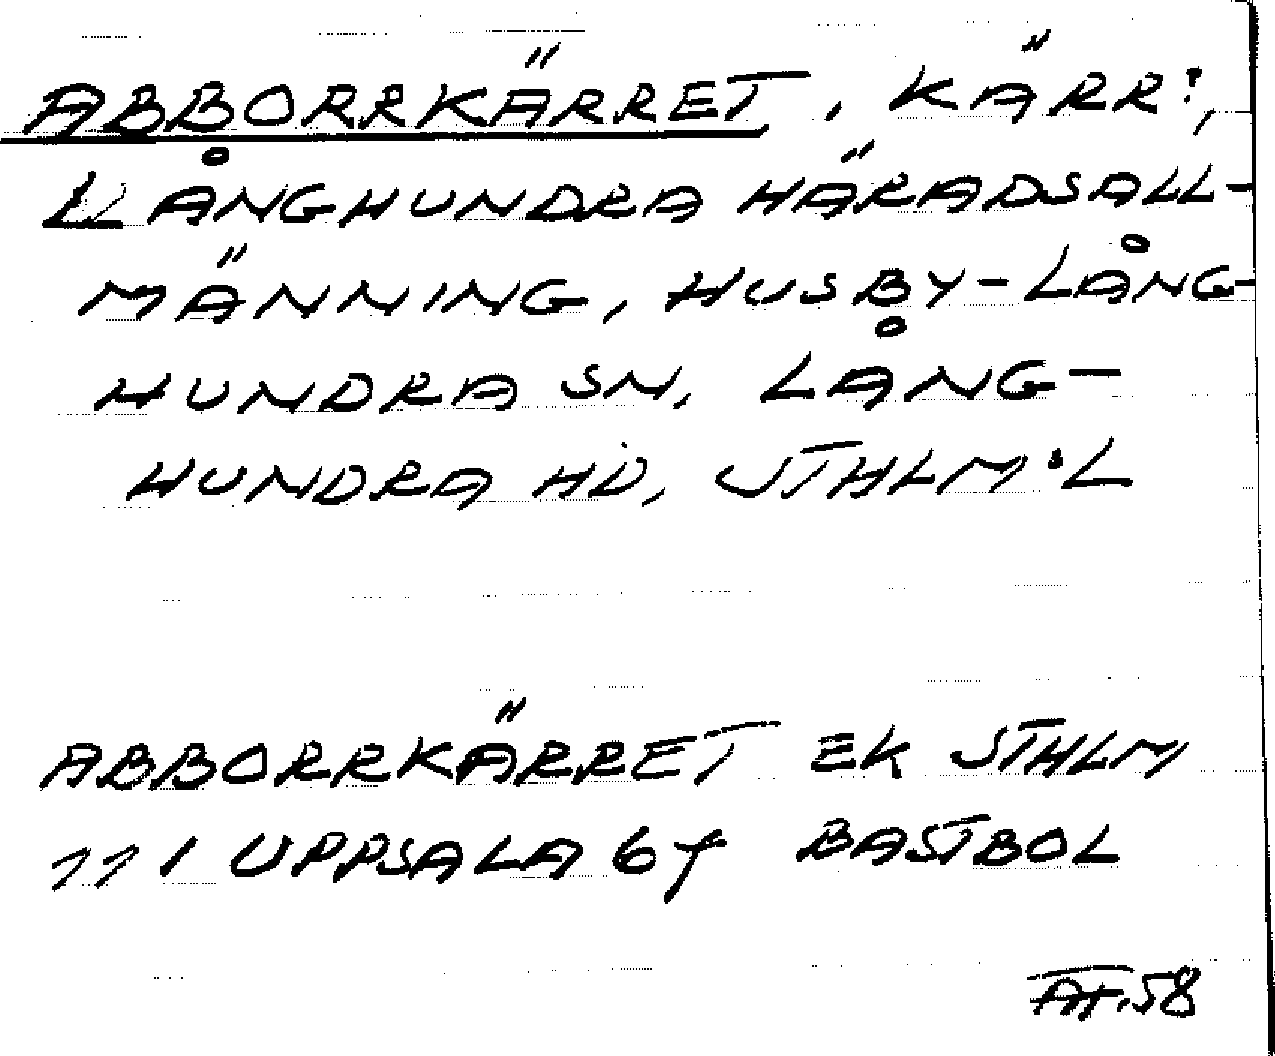 ABBORRKÄRRET, KÄRR?,
LÅNGHUNDRA HÄRADSALL-
MÄNNING, HUSBY-LÅNG-
HUNDRA SN, LÅNG-
HUNDRA HD, STHLM:L
ABBORRKÄRRET EK STHLM
11 1 UPPSALA 6f BASTBOL
58